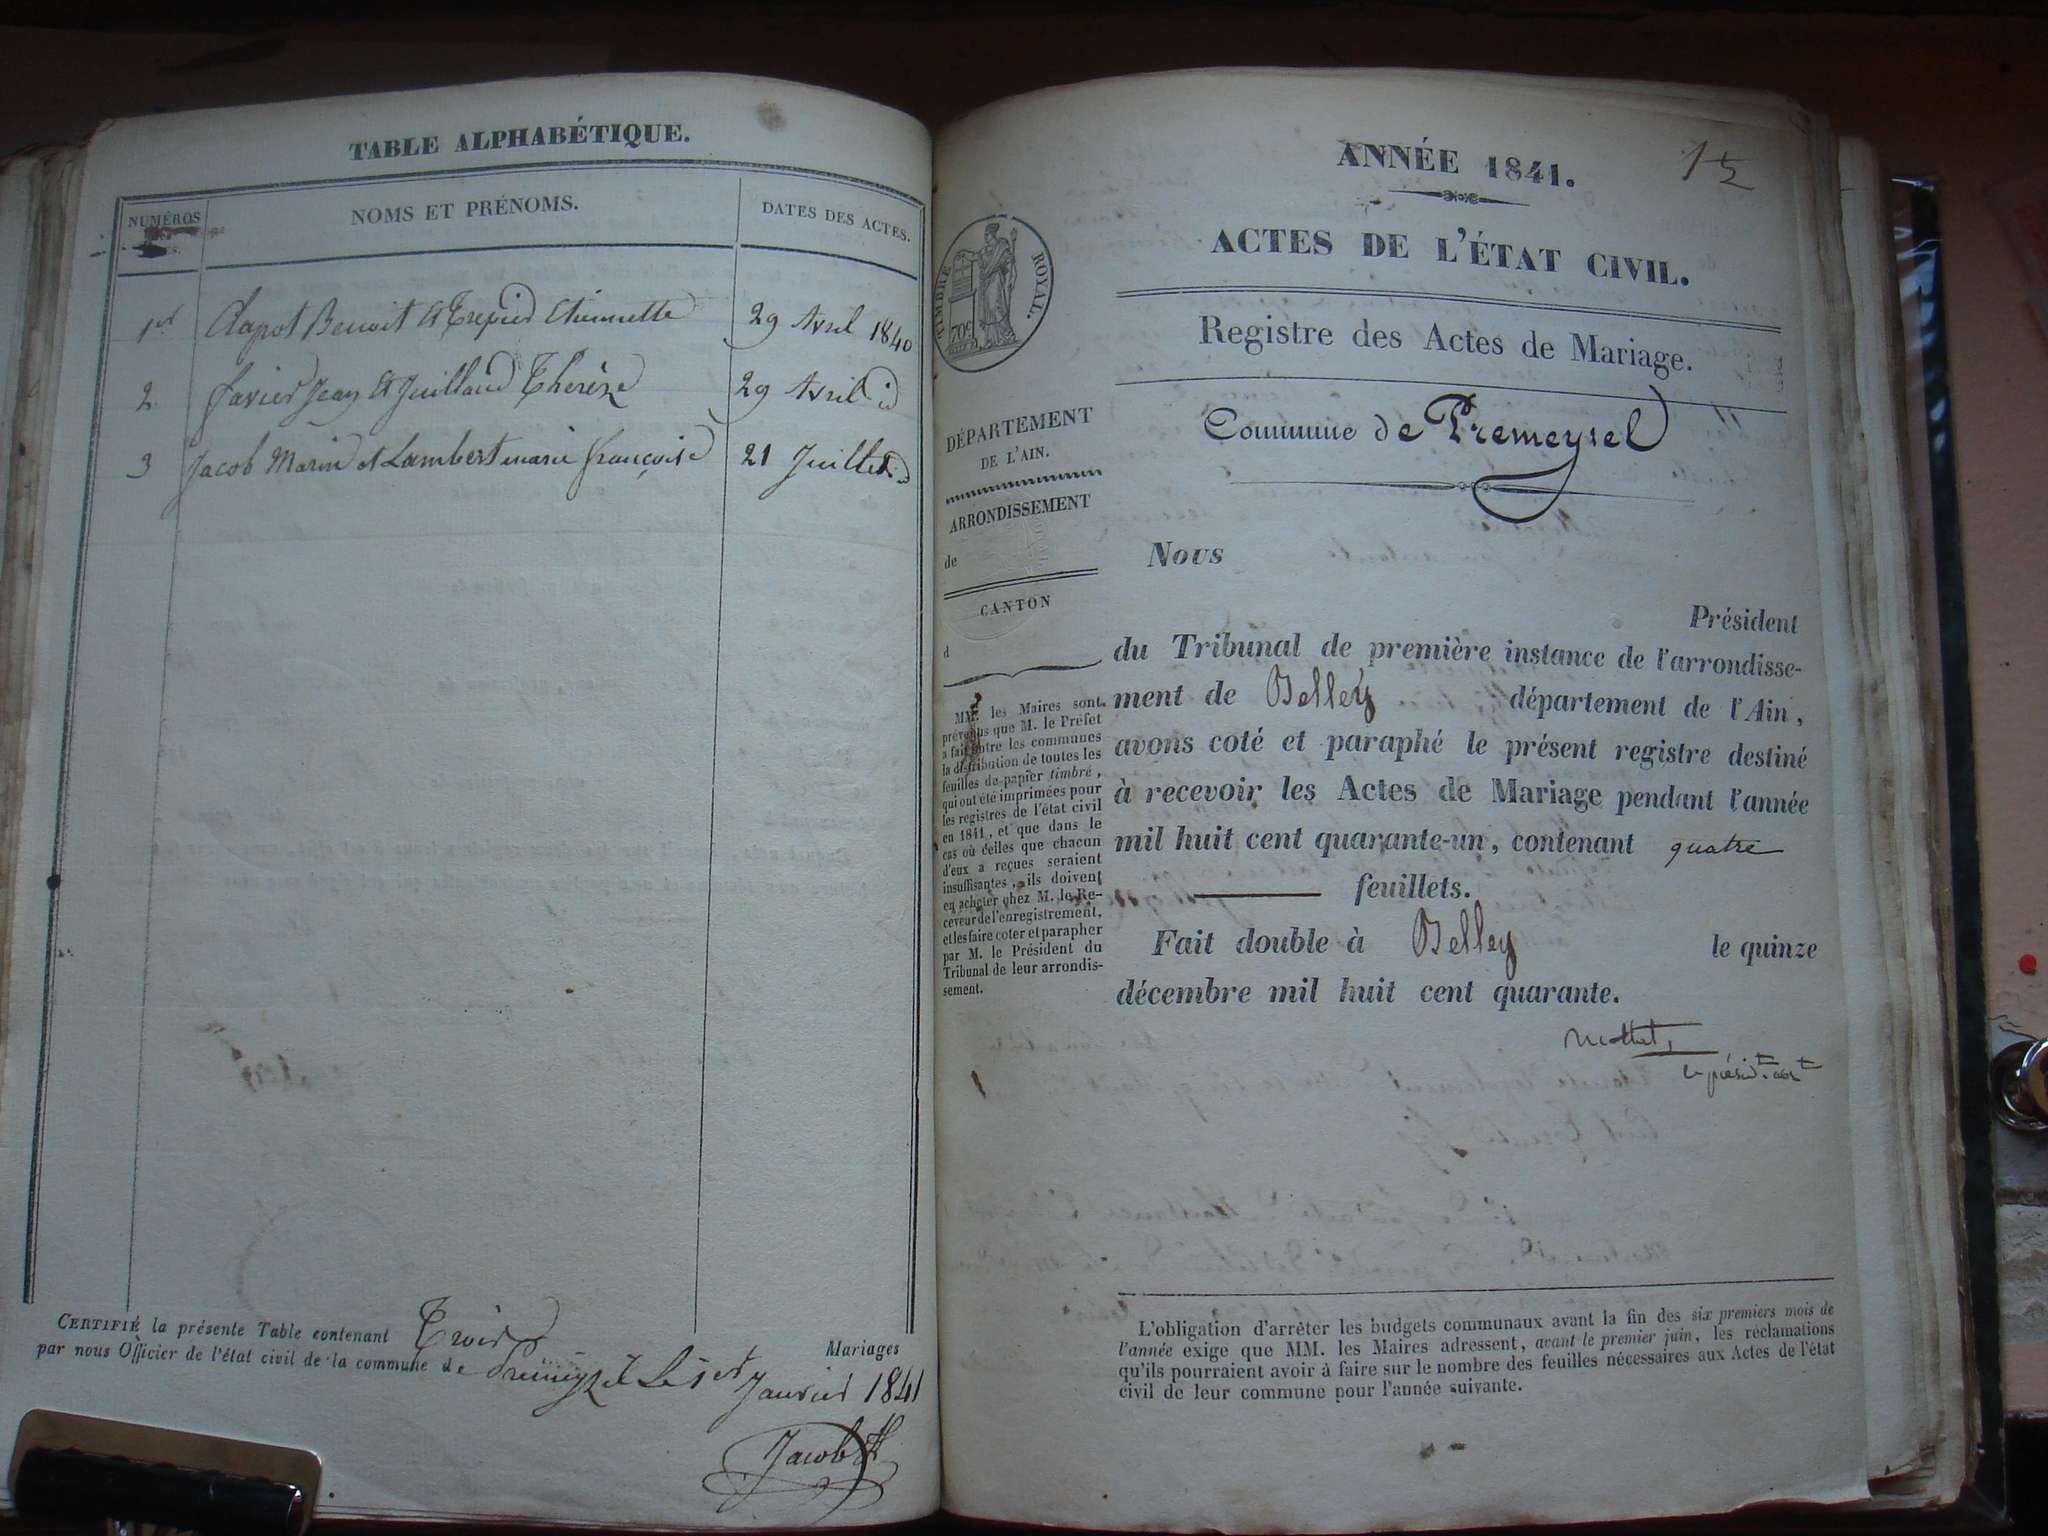 TABLE ALPHABÉTIQUE.
NUMÉROS
NOMS ET PRÉNOMS.
DATES DES ACTES.
1er Clapot Benoit et Trepied Etiennette 29 Avril 1840
2 favier Jean et Juilland Therèze 29 Avril id
3 Jacob Marin et Lambert marie françoise 21 Juillet id
CERTIFIÉ la présente Table contenant Trois Mariages
par nous Officier de l'état civil de la commune de Premeyzel Le 1er Janvier 1841
Jacob
15
ANNÉE 1841.
ACTES DE L'ÉTAT CIVIL.
Registre des Actes de Mariage.
Commune de Premeysel
TIMBRE ROYAL.
70c
DÉPARTEMENT
DE L'AIN.
ARRONDISSEMENT
de
CANTON
d
MM. les Maires sont
prévenus que M. le Préfet
a fait entre les communes
la distribution de toutes les
feuilles de papier timbré,
qui ont été imprimées pour
les registres de l'état civil
en 1841, et que dans le
cas où celles que chacun
d'eux a reçues seraient
insuffisantes, ils doivent
en acheter chez M. le Re-
ceveur de l'enregistrement,
et les faire coter et parapher
par M. le Président du
Tribunal de leur arrondis-
sement.
Nous
Président
du Tribunal de première instance de l'arrondisse-
ment de Belley département de l'Ain,
avons coté et paraphé le présent registre destiné
à recevoir les Actes de Mariage pendant l'année
mil huit cent quarante-un, contenant quatre
feuillets.
Fait double à Belley le quinze
décembre mil huit cent quarante.
L'obligation d'arrêter les budgets communaux avant la fin des six premiers mois de
l'année exige que MM. les Maires adressent, avant le premier juin, les réclamations
qu'ils pourraient avoir à faire sur le nombre des feuilles nécessaires aux Actes de l'état
civil de leur commune pour l'année suivante.